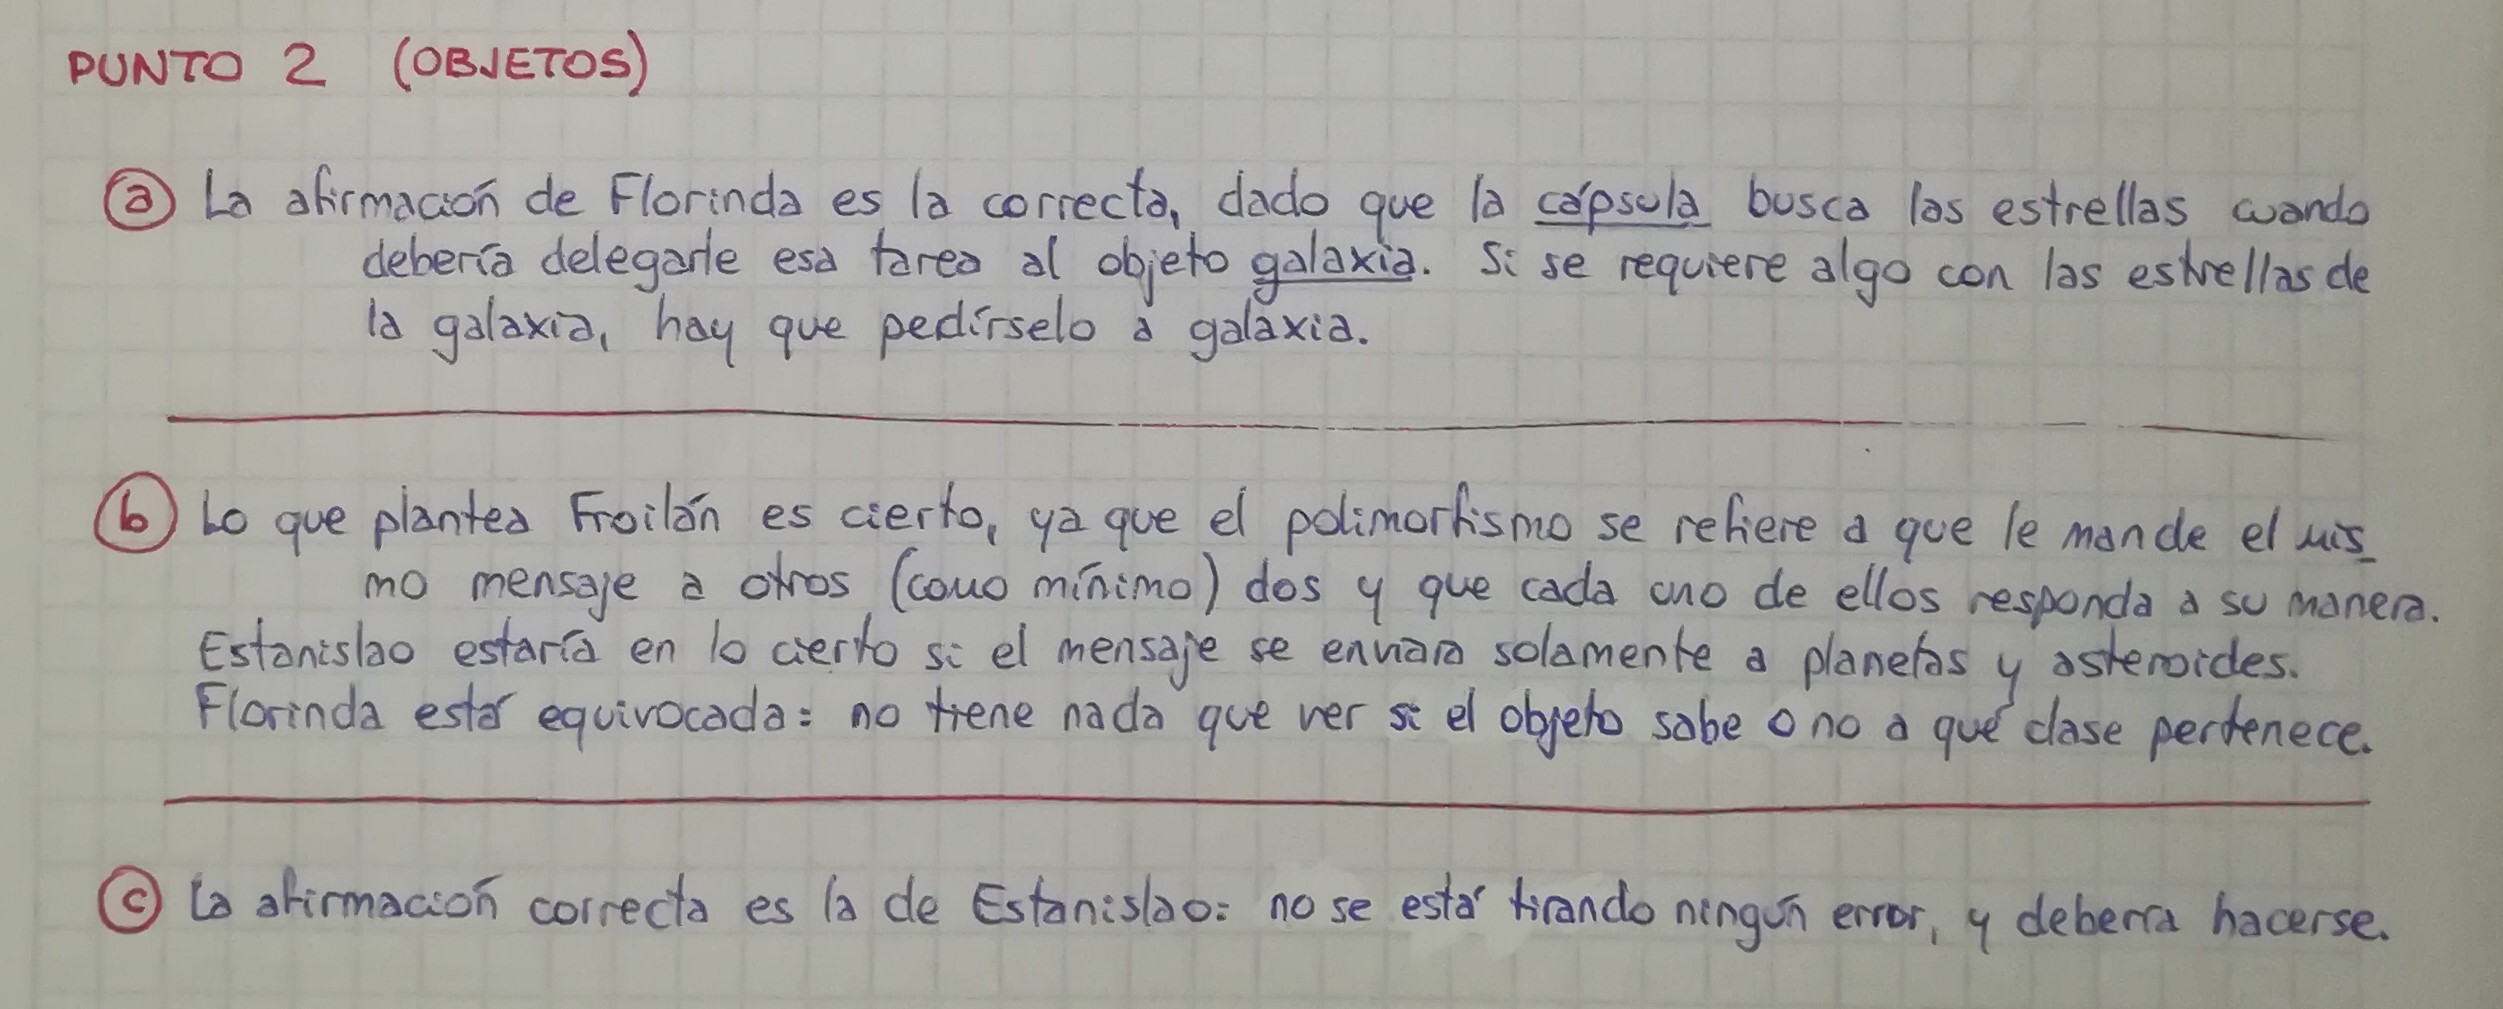 PUNTO 2 (OBJETOS)
a La afirmación de Florinda es la correcta, dado que la cápsula busca las estrellas cuando
debería delegarle esa tarea al objeto galaxia. Si se requiere algo con las estrellas de
la galaxia, hay que pedírselo a galaxia.
b Lo que plantea Froilán es cierto, ya que el polimorfismo se refiere a que le mande el mis
mo mensaje a otros (como mínimo) dos y que cada uno de ellos responda a su manera.
Estanislao estaría en lo cierto si el mensaje se enviara solamente a planetas y asteroides.
Florinda está equivocada: no tiene nada que ver si el objeto sabe o no a qué clase pertenece.
c La afirmación correcta es la de Estanislao: no se está tirando ningún error, y debería hacerse.